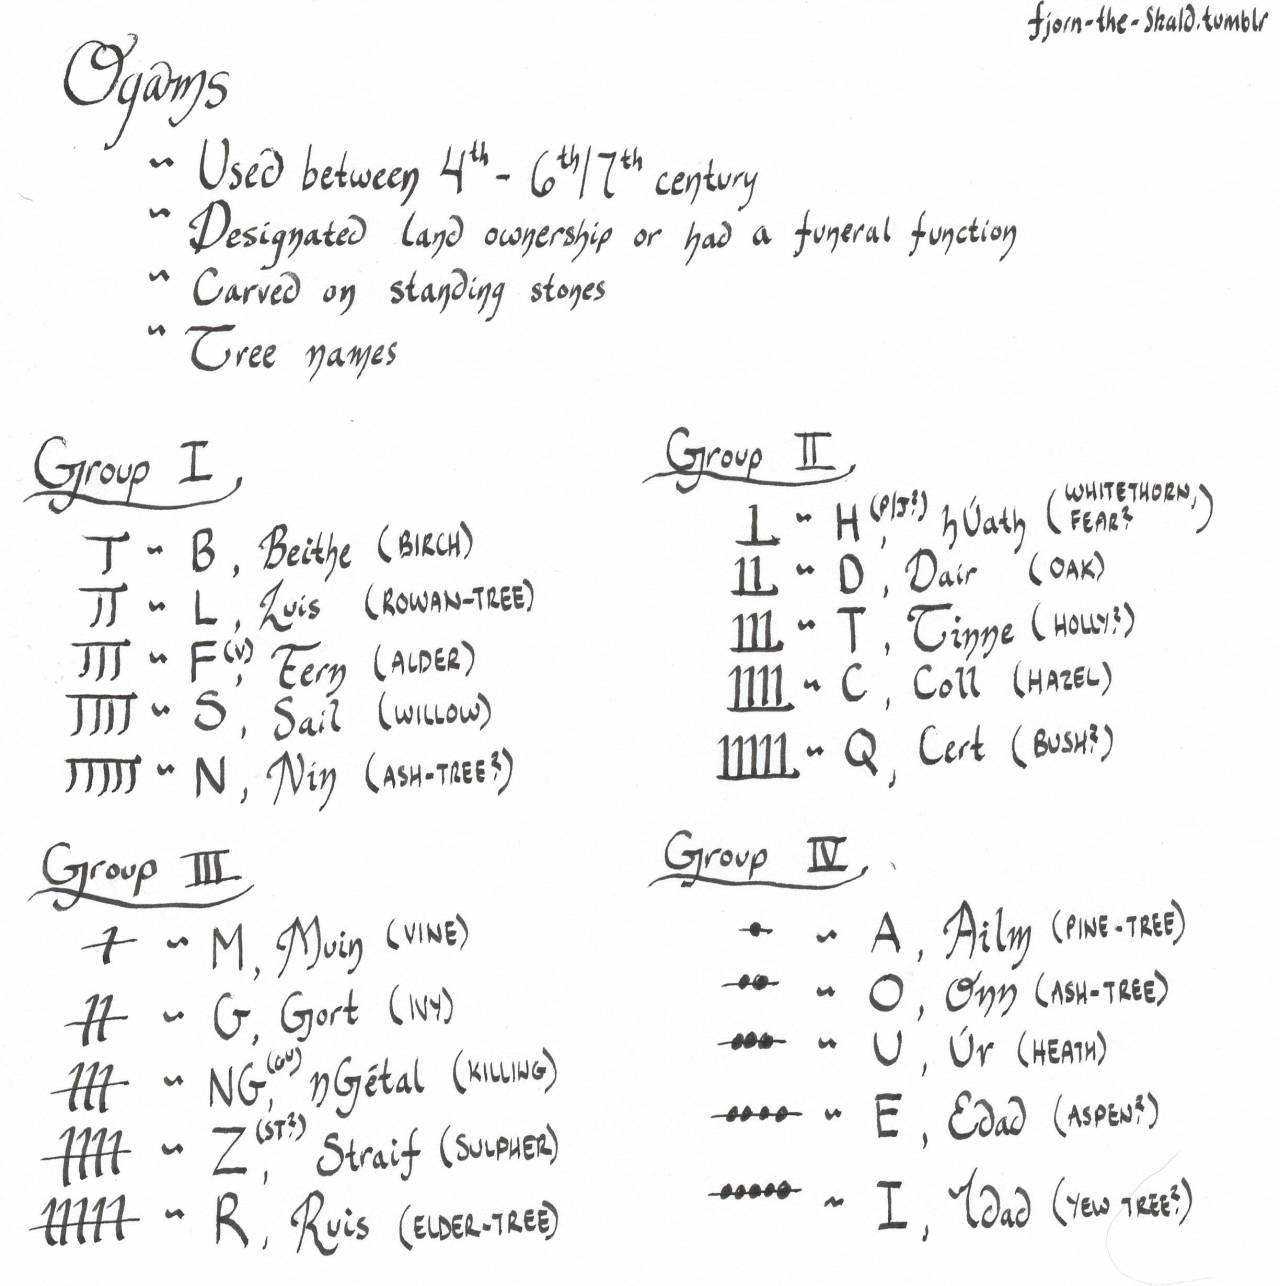 fjorn-the-Skald.tumblr
Ogams
~ Used between 4th - 6th/7th century
~ Designated land ownership or had a funeral function
~ Carved on standing stones
~ Tree names
Group I
~ B, Beithe (BIRCH)
~ L, Luis (ROWAN-TREE)
~ F(V), Fern (ALDER)
~ S, Sail (WILLOW)
~ N, Nin (ASH-TREE?)
Group II
~ H(P/J?), hÚath (WHITETHORN, FEAR?)
~ D, Dair (OAK)
~ T, Tinne (HOLLY?)
~ C, Coll (HAZEL)
~ Q, Cert (BUSH?)
Group III
~ M, Muin (VINE)
~ G, Gort (IVY)
~ NG(GU), nGétal (KILLING)
~ Z(ST?), Straif (SULPHER)
~ R, Ruis (ELDER-TREE)
Group IV
~ A, Ailm (PINE-TREE)
~ O, Onn (ASH-TREE)
~ U, Úr (HEATH)
~ E, Edad (ASPEN?)
~ I, Idad (YEW TREE?)